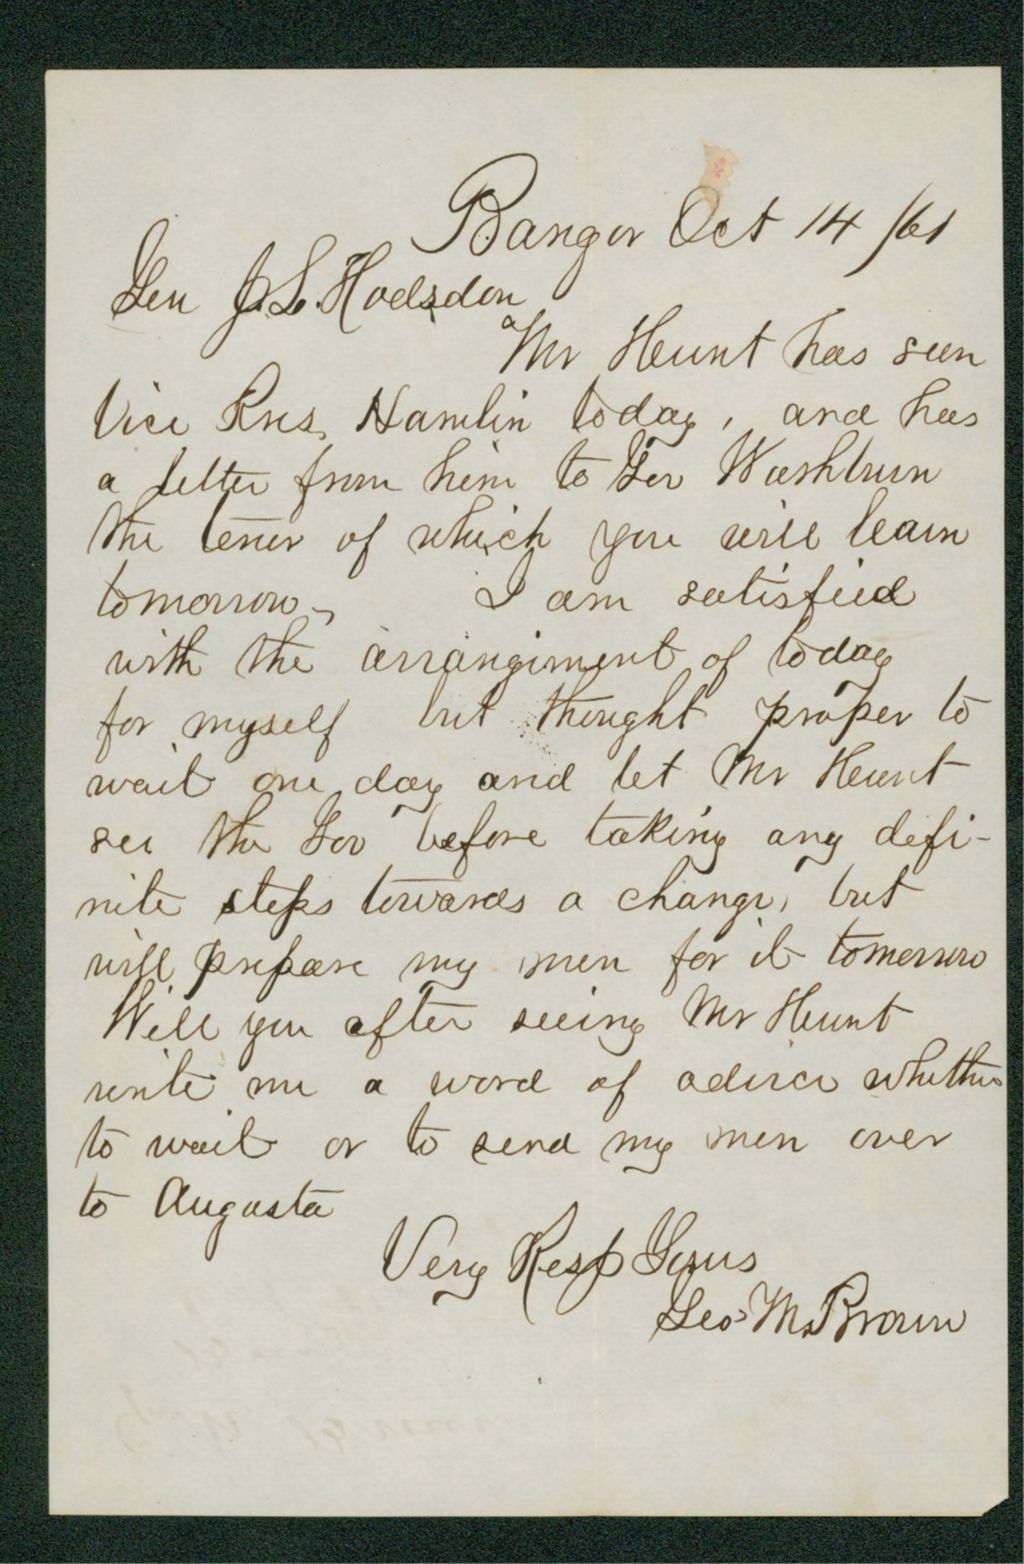 Bangor Oct 14 /61
Gen J. L. Hodsdon
Mr Hunt has seen
Vice Pres. Hamlin today, and has
a letter from him to Gov Washburn
the tenor of which you will learn
tomorrow. I am satisfied
with the arrangement of today
for myself but thought proper to
wait one day and let Mr Hunt
see the Gov before taking any defi-
nite steps towards a change, but
will prepare my men for it tomorrow
Will you after seeing Mr Hunt
write me a word of advice whether
to wait or to send my men over
to Augusta
Very Resp Yours
Geo. M. Brown